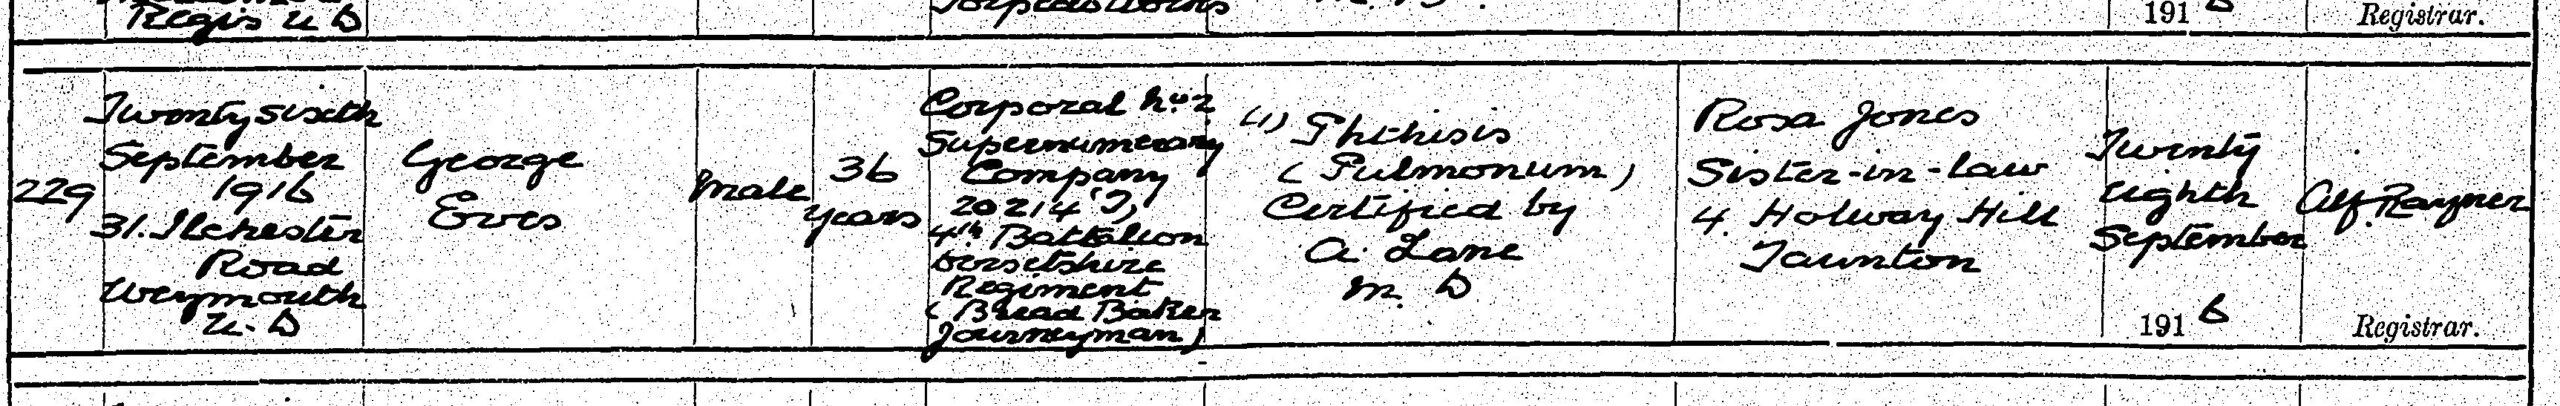 Regis U D
191 6
Registrar.
229
Twenty sixth
September
1916
31. Ilchester
Road
Weymouth
U. D
George
Eves
Male
36
years
Corporal No 2
Supernumerary
Company
20214 (T)
4th Battalion
Dorsetshire
Regiment
(Bread Baker
Journeyman)
(1) Phthisis
(Pulmonum)
Certified by
A. Lane
M. D
Rosa Jones
Sister-in-law
4. Holway Hill
Taunton
Twenty
eighth
September
191 6
Alf. Rayner
Registrar.